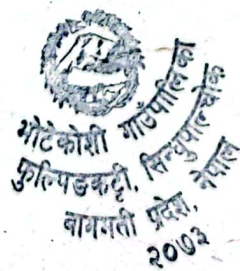 भोटेकोशी गाउँपालिका
फुल्पिङकट्टी, सिन्धुपाल्चोक
बागमती प्रदेश, नेपाल
२०७३